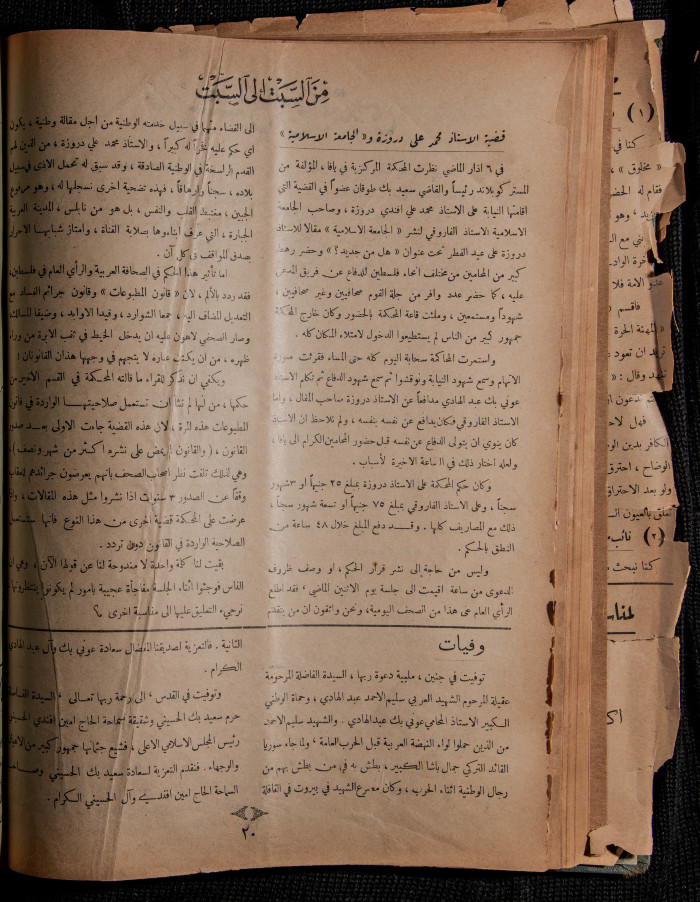 من السبت الى السبت
قضية الاستاذ محمد علي دروزة و« الجامعة الاسلامية »
في ٦ اذار الماضي نظرت المحكمة المركزية في يافا، المؤلفة من
المستر كوبلاند رئيساً والقاضي سعيد بك طوقان عضواً في القضية التي
اقامتها النيابة على الاستاذ محمد علي افندي دروزة ، وصاحب الجامعة
الاسلامية الاستاذ الفاروقي لنشر « الجامعة الاسلامية » مقالا للاستاذ
دروزة على عيد الفطر تحت عنوان « هل من جديد؟ » وحضر رهط
كبير من المحامين من مختلف انحاء فلسطين للدفاع عن فريق المدعى
عليه ، كما حضر عدد وافر من جلة القوم صحافيين وغير صحافيين ،
شهوداً ومستمعين ، وملئت قاعة المحكمة بالحضور وكان خارج المحكمة
جمهور كبير من الناس لم يستطيعوا الدخول لامتلاء المكان كله .
واستمرت المحاكمة سحابة اليوم كله حتى المساء فقرئت صورة
الاتهام وسمع شهود النيابة ونوقشوا ثم سمع شهود الدفاع ثم تكلم الاستاذ
عوني بك عبد الهادي مدافعاً عن الاستاذ دروزة صاحب المقال ، واما
الاستاذ الفاروقي فكان يدافع عن نفسه بنفسه ، ولم نلاحظ ان الاستاذ
كان ينوي ان يتولى الدفاع عن نفسه قبل حضور المحامين الكرام الى يافا ،
ولعله اختار ذلك في الساعة الاخيرة لأسباب .
وكان حكم المحكمة على الاستاذ دروزة بمبلغ ٢٥ جنيهاً او ٣ شهور
سجناً ، وعلى الاستاذ الفاروقي بمبلغ ٧٥ جنيهاً او تسعة شهور سجناً ،
ذلك مع المصاريف كلها . وقد دفع المبلغ خلال ٤٨ ساعة من
النطق بالحكم .
وليس من حاجة الى نشر قرار الحكم ، او وصف ظروف
الدعوى من ساعة اقيمت الى جلسة يوم الاثنين الماضي ، فقد اطلع
الرأي العام على هذا من الصحف اليومية، ونحن واثقون ان من يتقدم
الى القضاء متهماً في سبيل خدمته الوطنية من اجل مقالة وطنية ، يكون
اي حكم عليه فخراً له كبيراً ، والاستاذ محمد علي دروزة ، من الذين لهم
القدم الراسخة في الوطنية الصادقة ، وقد سبق له تحمل الاذى في سبيل
بلاده ، سجناً وارهاقاً ، فهذه تضحية اخرى نسجلها له ، وهو مرفوع
الجبين ، مغتبط القلب والنفس ، بل هو من نابلس ، المدينة العربية
الجبارة ، التي عرف ابناءها بصلابة القناة ، وامتاز شبابها الاحرار
بصدق المواقف في كل آن .
اما تأثير هذا الحكم في الصحافة العربية والرأي العام في فلسطين،
فقد ردد بالألم ، لان « قانون المطبوعات » وقانون جرائم الفساد مع
التعديل المضاف اليه ، جمعا الشوارد ، وقيدا الاوابد ، وضيقا المسالك
وصار الصحفي لاهون عليه ان يدخل الخيط في ثقب الابرة من وراء
ظهره ، من ان يكتب عبارة لا يتجهم في وجهها هذان القانونان !
ويكفي ان نذكر للقراء ما قالته المحكمة في القسم الاخير من
حكمها ، من انها لم تشأ ان تستعمل صلاحيتها الواردة في قانون
المطبوعات هذه المرة ، لان هذه القضية جاءت الاولى بعد صدور
القانون ، ( والقانون لم يمض على نشره اكثر من شهر ونصف) ،
وهي لذلك تلفت نظر اصحاب الصحف بانهم يعرضون جرائدهم للعقاب
وقفاً عن الصدور ٣ سنوات اذا نشروا مثل هذه المقالات ، واذا
عرضت على المحكمة قضية اخرى من هذا النوع فانها ستستعمل
الصلاحية الواردة في القانون دون تردد .
بقيت لنا كلمة واحدة لا مندوحة لنا عن قولها الآن ، وهي ان
الناس فوجئوا اثناء الجلسة مفاجأة عجيبة بامور لم يكونوا ينتظرونها
نرجيء التعليق عليها الى مناسبة اخرى م؟
وفيات
توفيت في جنين ، ملبية دعوة ربها ، السيدة الفاضلة المرحومة
عقيلة المرحوم الشهيد العربي سليم الاحمد عبد الهادي ، وحماة الوطني
الكبير الاستاذ المحامي عوني بك عبد الهادي . والشهيد سليم الاحمد
من الذين حملوا لواء النهضة العربية قبل الحرب العامة ، ولما جاء سوريا
القائد التركي جمال باشا الكبير ، بطش به في من بطش بهم من
رجال الوطنية اثناء الحرب ، وكان مصرع الشهيد في بيروت في القافلة
الثانية . فالتعزية لصديقنا المفضال سعادة عوني بك وآل عبد الهادي
الكرام .
وتوفيت في القدس ، الى رحمة ربها تعالى ، السيدة الفاضلة
حرم سعيد بك الحسيني وشقيقة سماحة الحاج امين افندي الحسيني
رئيس المجلس الاسلامي الاعلى ، فشيع جثمانها جمهور كبير من الاعيان
والوجهاء . فنقدم التعزية لسعادة سعيد بك الحسيني وصاحب
السماحة الحاج امين افندي وآل الحسيني الكرام .
٢٠
(١)
كنا في
« مخلوق » ،
فقام له
نني مع
« المهنة الحرة
تريد ان تعود
شهد وقال : «
فهل لاحد
الكافر بدين
الوضاح ، احترق
ولو بعد الاحتراق
تعلق بالعيون
(٢) نائب
كنا نبحث